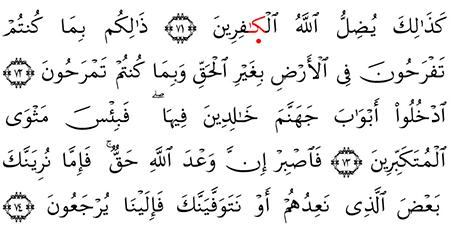 كَذَٰلِكَ يُضِلُّ اللَّهُ الْكَـٰفِرِينَ ﴿٧١﴾ ذَٰلِكُم بِمَا كُنتُمْ
تَفْرَحُونَ فِى الْأَرْضِ بِغَيْرِ الْحَقِّ وَبِمَا كُنتُمْ تَمْرَحُونَ ﴿٧٢﴾
ادْخُلُوٓا۟ أَبْوَٰبَ جَهَنَّمَ خَـٰلِدِينَ فِيهَا ۖ فَبِئْسَ مَثْوَى
الْمُتَكَبِّرِينَ ﴿٧٣﴾ فَاصْبِرْ إِنَّ وَعْدَ اللَّهِ حَقٌّ ۚ فَإِمَّا نُرِيَنَّكَ
بَعْضَ الَّذِى نَعِدُهُمْ أَوْ نَتَوَفَّيَنَّكَ فَإِلَيْنَا يُرْجَعُونَ ﴿٧٤﴾